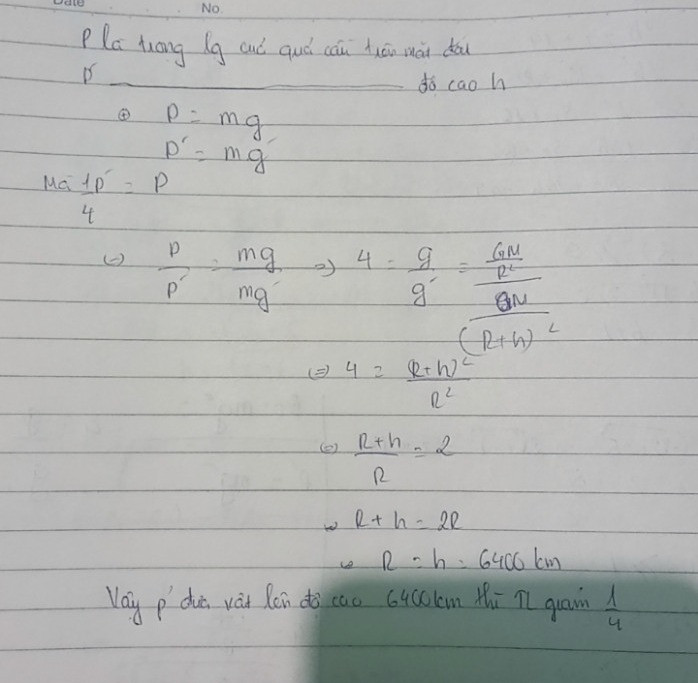 Date No.
P là trọng lg cuả quả cầu trên mặt đất
P' ———————— độ cao h
⊕ P = mg
P' = mg'
Mà 1P'/4 = P
(=) P/P' = mg/mg' => 4 = g/g' = (GM/R²)/(GM/(R+h)²)
(=) 4 = (R+h)²/R²
(=) (R+h)/R = 2
(=) R + h = 2R
(=) R = h = 6400 km
Vậy p' đưa vật lên độ cao 6400km thì TL giảm 1/4